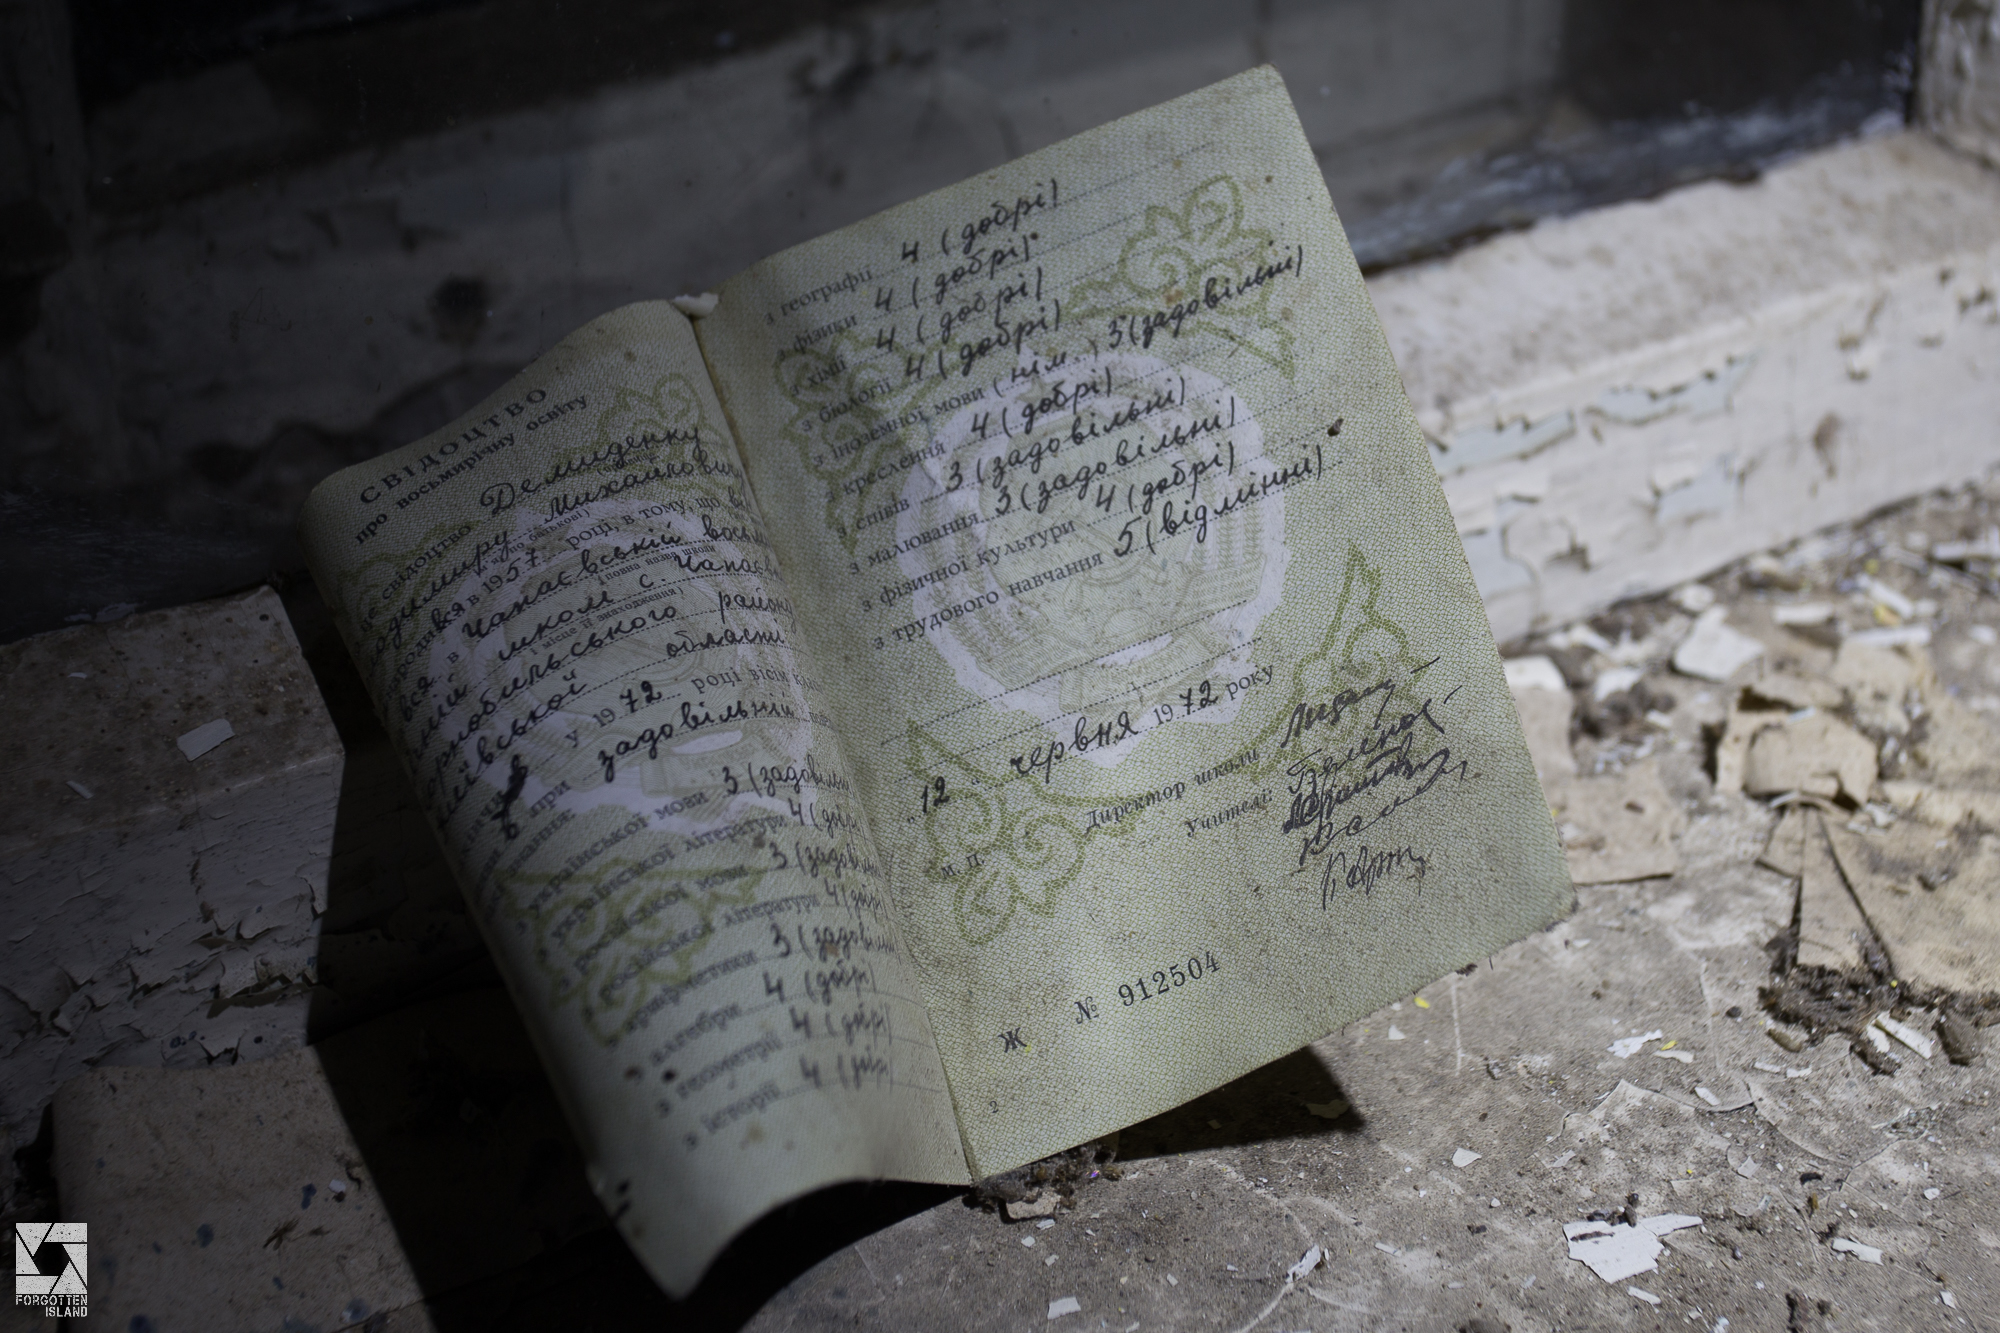 СВІДОЦТВО
про восьмирічну освіту
свідоцтво Демиденку
Михайлович
по батькові)
1957 році, в тому, що
в Чапаєвській
(повна назва школи
школі с.
і місце її знаходження)
району
області
у 1972 році вісім
при задовільній
української мови 3 (задовільні
української літератури 4 (добрі
російської мови 3 (задовільні
російської літератури 4 (добрі
3 (задовільні
з алгебри 4 (добрі)
з геометрії 4 (добрі)
з історії 4 (добрі)
з географії 4 (добрі)
з фізики 4 (добрі)
з хімії 4 (добрі)
з біології 4 (добрі)
з іноземної мови (нім.) 3 (задовільні)
креслення 4 (добрі)
з співів 3 (задовільні)
з малювання 3 (задовільні)
з фізичної культури 4 (добрі)
з трудового навчання 5 (відмінні)
„12 “ червня 1972 року
Директор школи
Учителі:
М. П.
Ж № 912504
2
FORGOTTEN
ISLAND